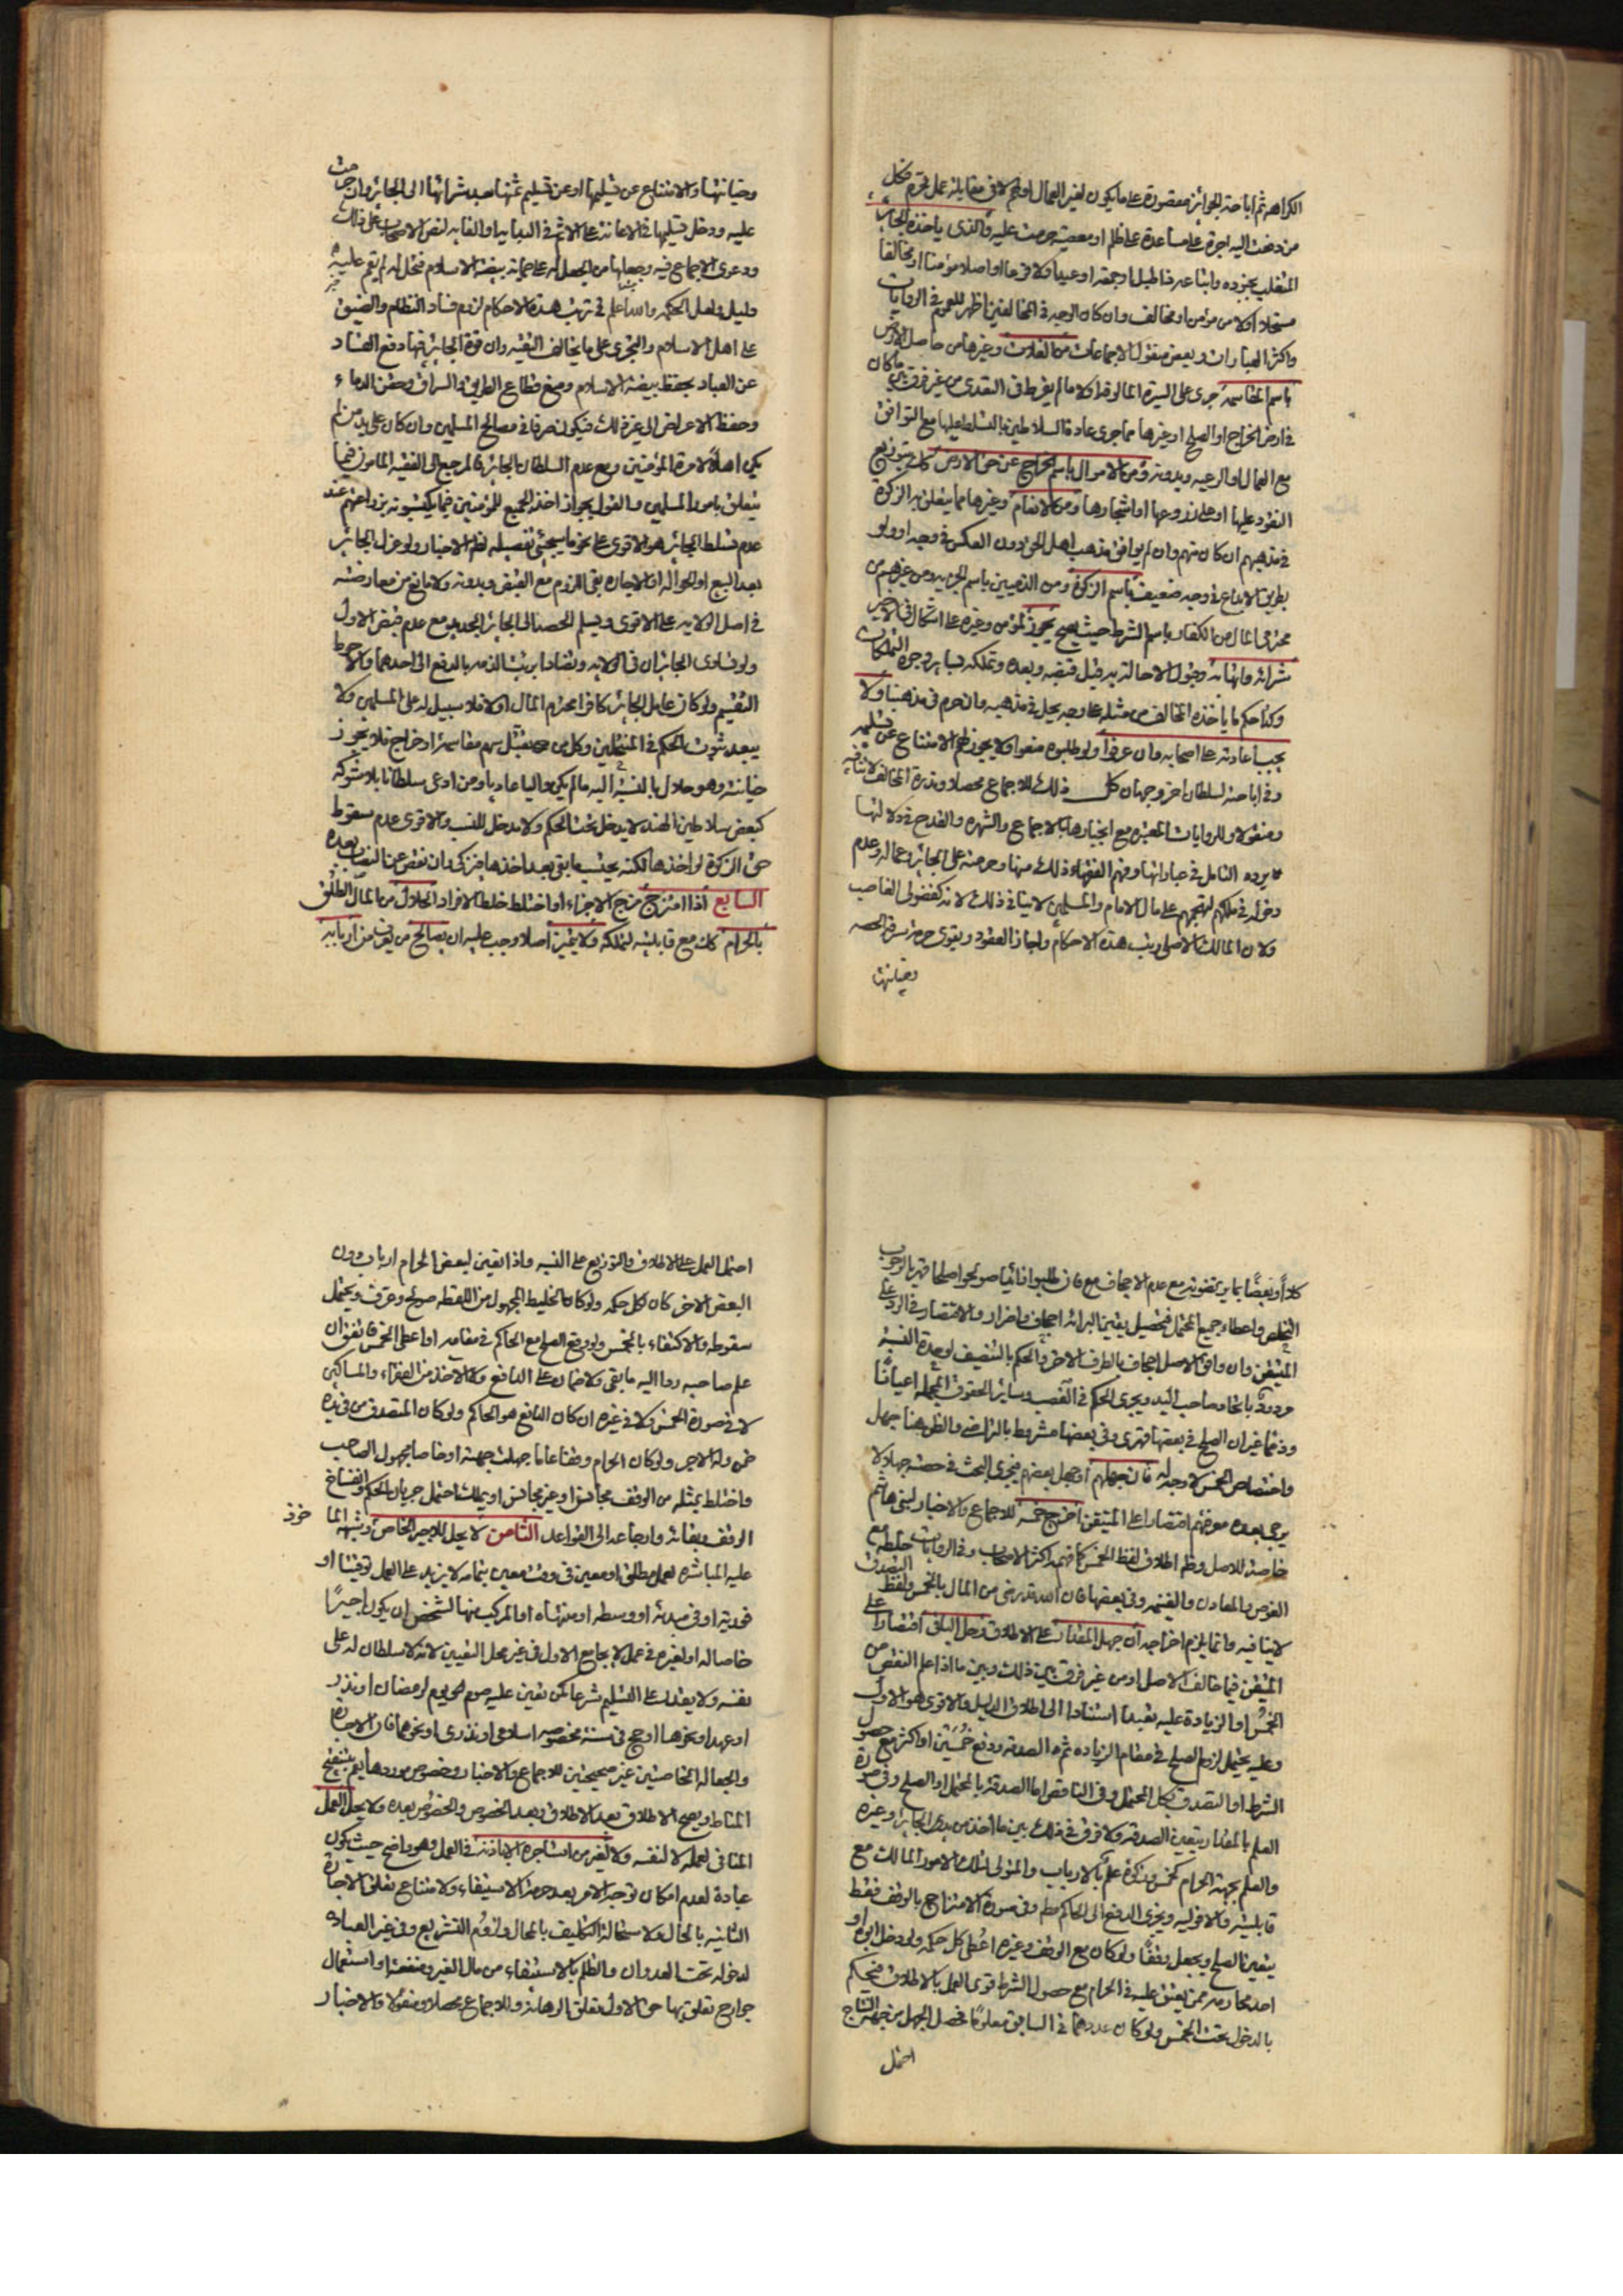 الكراهه ثم اباحة الجوائز مقصورة على ما يكون لغير العمال اولهم لا في مقابلة عمل محرم فكل
من دفعت اليه اجرة على مساعدة على ظلم او معصية حرمت عليه والذى ياخذه الجائر
المتغلب بجنوده واتباعه
مستحلا اولا من مؤمن او مخالف وان كان الوجه في المخالفين اظهر للعموم في الروايات
واكثر العبارات وبعض منقول الاجماعات من الغلات وغيرها من حاصل الارض
باسم المقاسمه جرى على السيرة المألوفة اولا ما لم يفرط في التعدى من غير فرق بين ما كان
في ارض الخراج او الصلح او غيرها مما جرى عادة السلاطين بالتسلط عليها مع التوافق
مع العمال او الرعيه وبدونه ومن الاموال باسم الخراج عن حق الارض كان بتوزيع
النقود عليها او على زروعها او اشجارها ومن الانعام وغيرها مما يتعلق به الزكوة
في مذهبهم ان كان منهم وان لم يوافق مذهب اهل الحق دون العكس في وجه او ولو
بطريق الابداع في وجه ضعيف باسم الزكوة ومن الذميين باسم الجزيه ومن غيرهم من
محترمى المال من الكفار باسم الشرط حيث يصح يجوز لمؤمن وغيره على اشكال في الاخير
شرائه واتهابه وقبول الاحالة به قبل قبضه وبعده وتملكه بسائر وجوه التملكات
وكذا حكم ما ياخذه المخالف من مثله على وجه يحل في مذهبه وان حرم في مذهبنا ولا
يجب اعادته على اصحابه وان عرفوا ولو طلبوه منعوا ولا يجوز لهم الامتناع عن تسليمه
وفي اباحته لسلطان اخر وجهان كل ذلك للاجماع محصلا وندرة المخالف لا تنافيه
ومنقولا وللروايات المعتبره مع انجبارها بالاجماع والشهره والقدح في دلالتها
يرده التامل في عباراتها وفهم الفقهاء ذلك منها وحرمته على الجائر وعماله وعدم
دخوله في ملكهم لهجومهم على مال الامام والمسلمين لا ينافي ذلك لانه كفضولى الغاصب
ولان المالك الاصلى رتب هذه الاحكام واجاز العقود ويقوى حرمة سرقة الحصه
وخيانتها
وخيانتها والامتناع عن تسليمها او عن تسليم ثمنها بعد شرائها الى الجائر وان حرمت
عليه ودخل تسليمها في الاعانة على الاثم في البدايه او الغايه لنص الاصحاب على ذلك
ودعوى الاجماع فيه وجعلها من الجعل له على حماية بيضة الاسلام فتحل له لم يقم عليه
دليل ولعل الحكمه والله اعلم في ترتب هذه الاحكام لزوم فساد النظام والضيق
على اهل الاسلام والتجرى على ما يخالف التقيه وان قوة الجائر فيها دفع الفساد
عن العباد بحفظ بيضة الاسلام ومنع قطاع الطريق والسراق وحقن الدماء
وحفظ الاعراض الى غير ذلك فيكون صرفا في مصالح المسلمين وان كان على يد من لم
يكن اهلا لامرة المؤمنين ومع عدم السلطان الجائر فالمرجع الى الفقيه المأمون فيما
يتعلق بامور المسلمين والقول بجواز اخذ الجميع للمؤمنين فيما يكتسبونه بزراعتهم عند
عدم تسلط الجائر هو الاقوى على نحو ما سيجئ تفصيله لظم الاخبار ولو عزل الجائر
بعد البيع او الحواله او الاجاره بقى اللزوم مع القبض وبدونه ولا مانع من معارضته
في اصل الولايه على الاقوى ويسلم الحصه الى الجائر الجديد مع عدم قبض الاول
ولو تساوى الجائران في الولايه وتضاربا برئت الذمه بالدفع الى احدهما والاحوط
التقسيم ولو كان عامل الجائر كافرا محترم المال اولا فلا سبيل له على المسلمين ولا
يبعد ثبوت الحكم في المنتحلين وكل من تقبل سهم مقاسمة او خراج فلا يجوز
خيانته وهو حلال بالنسبة اليه ما لم يكن واليا عاديا ومن ادعى سلطانا بلا شوكه
كبعض سلاطين الهند لا يدخل تحت الحكم ولا مدخل للنسب والاقوى عدم سقوط
حق الزكوة لو اخذها لكنه يحتسب ما بقى بعد اخذها فيزكى وان نقص عن النصاب بعده
السابع اذا امتزج مزج الاجزاء او اختلط خلط الافراد الحلال من المال المطلق
بالحرام كك مع قابليته لتملكه ولا تميز اصلا وجب عليه ان يصالح من يعرف من اربابه
كلا او بعضا بما يرتضونه مع عدم الاجحاف مع فان طلبوا زائدا صولحوا صلحا قهريا لوجوب
التخلص واعطاء جميع المحتمل فتحصيل يقين البرائة اجحاف واضرار والاقتصار في الرد على
المتيقن وان وافق الاصل اجحاف بالطرف الاخر والحكم بالتنصيف لوحدة النسبة
مردود باتحاد صاحب اليد ويجرى الحكم في الغصب وسائر الحقوق المجملة اعيانا
وذمما غير ان الصلح في بعضها قهرى وفي بعضها مشروط بالتراضى والظلم هنا جهل
واختصاص الخمس لا وجه له فان جهلهم او جهل بعضهم فيجرى البحث في حصته جهلا لا
يرجى بعده معرفتهم اقتصارا على المتيقن اخرج خمسه للاجماع والاخبار لبنى هاشم
خاصة للاصل وظم اطلاق لفظ الخمس كما فهمه اكثر الاصحاب وفي الروايات خلطه مع
الغوص والمعادن والغنيمه وفي بعضها فان الله قد رضى من المال بالخمس ولفظ التصدق
لا ينافيه وانما يلزم اخراجه ان جهل المقدار على الاطلاق وحل الباقى اقتصارا على
المتيقن فيما خالف الاصل او من غير فرق بين ذلك وبين ما اذا علم النقص من
الخمس او الزيادة عليه تعبدا استنادا الى اطلاق الدليل والاقوى هو الاول
وعليه يحتمل لزوم الصلح في مقام الزياده ثم الصدقه ودفع خمسين او اكثر مع حصول
الشرط او التصدق بكل المحتمل وفي الناقص اما الصدقة بالمحتمل او الصلح وفي صورة
العلم بالمقدار يتعين الصدقه ولا فرق في ذلك بين ما اخذ من يدى الجائر وغيره
والعلم بجهة الحرام كخمس وزكوة علم بالارباب والمتولى لتلك الامور المالك مع
قابليته والافوليه ويجزى الدفع الى الحاكم مطم وفي صورة الامتزاج بالوقف فقط
يتعين الصلح ويجعل وقفا ولو كان مع الوقف وغيره اعطى كل حكمه ولو دخل ابوه او
احد محارمه ممن ينعتق عليه في الحرام مع حصول الشرط قوى العمل بالاطلاق فيحكم
بالدخول تحت الخمس ولو كان عددهما في السابق معلوما فحصل الجهل من جهة النتاج
احتمل
احتمل العمل على الاطلاق والتوزيع على النسبه واذا تعين لبعض الحرام ارباب دون
البعض الاخر كان لكل حكمه ولو كان الخليط المجهول من اللقطه صولح وعرف ويحتمل
سقوطه والاكتفاء بالخمس ولو وقع الصلح مع الحاكم في مقامه او اعطى الخمس فاتفق ان
علم صاحبه ردا اليه ما بقى ولا ضمان على الدافع ولا الاخذ من الفقراء والمساكين
لا في صورة الخمس ولا في غيره ان كان الدافع هو الحاكم ولو كان المتصدق من في يده
ضمن وله الاجر ولو كان الحرام وقفا عاما جهلت جهته او خاصا مجهول الصاحب
واختلط بمثله من الوقف مجانس او غير مجانس او بملك احتمل جريان الحكم وانفساخ
الوقف وبقائه وارجاعه الى القواعد الثامن لا يحل للاجير الخاص وشبهه الماخوذ
عليه المباشرة لعمل مطلق او معين في وقت معين بتمامه لا يزيد على العمل توقيتا او
فوريته او في مبدئه او وسطه او منتهاه او المركب منها لشخص ان يكون اجيرا
خاصا له او لغيره في عمل لا يجامع الاول في غير محل التعيين لانه لا سلطان له على
نفسه ولا يقدر على التسليم شرعا كمن تعين عليه صوم يوم لرمضان او نذر
او عهد او نحوها او حج في سنة مخصوصه اسلامى او نذرى او نحوها فان الاجارة
والجعاله الخاصتين غير صحيحتين للاجماع والاخبار وخصوص موردها يعم بتنقيح
المناط ويصح الاطلاق بعد الاطلاق وبعد الخصوص والخصوص بعده ولا يحل العمل
المنافى لعمله لا لنفسه ولا لغير من استاجره الا باذنه في العمل وهو واضح حيث يكون
عبادة لعدم امكان توجه الامر بعد حرمة الاستيفاء ولامتناع تعلق الاجارة
الثانيه بالمحال ولاستحالة التكليف بالمحال ولزوم التشريع وفي غير العباده
لدخوله تحت العدوان والظلم بالاستيفاء من مال الغير ومنفعته او استعمال
جوارح تعلق بها حق الاول تعلق الرهانة وللاجماع محصلا ومنقولا والاخبار